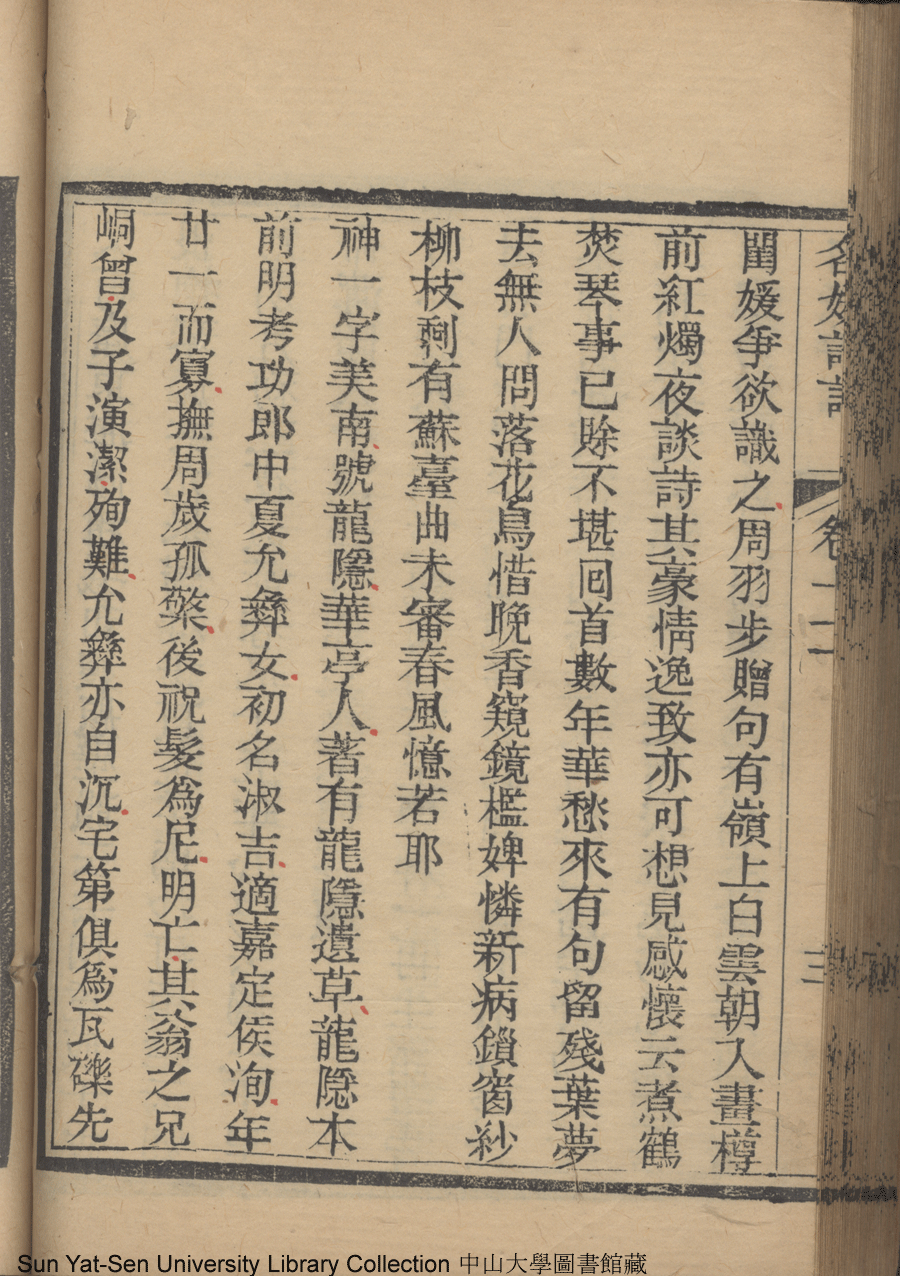 名媛詩話 卷十二 三
閨媛爭欲識之周羽步贈句有嶺上白雲朝入畫樽
前紅燭夜談詩其豪情逸致亦可想見感懷云煮鶴
焚琴事已賖不堪囘首數年華愁來有句留殘葉夢
去無人問落花鳥惜晚香窺鏡檻婢憐新病鎖窗紗
柳枝剩有蘇臺曲未審春風憶若耶
神一字美南號龍隱華亭人著有龍隱遺草龍隱本
前明考功郎中夏允彝女初名淑吉適嘉定侯洵年
廿一而寡撫周歲孤檠後祝髮爲尼明亡其翁之兄
峒曾及子演潔殉難允彝亦自沉宅第俱爲瓦礫先
Sun Yat-Sen University Library Collection 中山大學圖書館藏